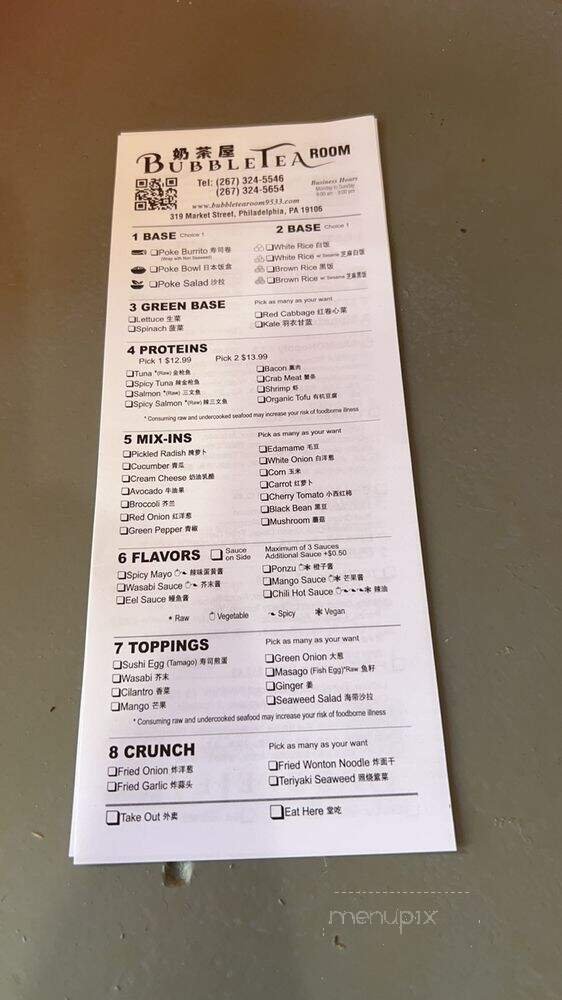 奶茶屋
BUBBLETEA ROOM
Tel: (267) 324-5546
(267) 324-5654
Business Hours
Monday to Sunday
www.bubbletearoom9533.com
319 Market Street, Philadelphia, PA 19106
1 BASE Choice 1
2 BASE Choice 1
Poke Burrito 寿司卷
(Wrap with Nori Seaweed)
Poke Bowl 日本饭盒
Poke Salad 沙拉
White Rice 白饭
White Rice w/ Sesame 芝麻白饭
Brown Rice 黑饭
Brown Rice w/ Sesame 芝麻黑饭
3 GREEN BASE
Pick as many as your want
Lettuce 生菜
Spinach 菠菜
Red Cabbage 红卷心菜
Kale 羽衣甘蓝
4 PROTEINS
Pick 1 $12.99 Pick 2 $13.99
Tuna *(Raw) 金枪鱼
Spicy Tuna 辣金枪鱼
Salmon *(Raw) 三文鱼
Spicy Salmon *(Raw) 辣三文鱼
Bacon 熏肉
Crab Meat 蟹条
Shrimp 虾
Organic Tofu 有机豆腐
* Consuming raw and undercooked seafood may increase your risk of foodborne illness
5 MIX-INS
Pick as many as your want
Pickled Radish 腌萝卜
Cucumber 青瓜
Cream Cheese 奶油乳酪
Avocado 牛油果
Broccoli 芥兰
Red Onion 红洋葱
Green Pepper 青椒
Edamame 毛豆
White Onion 白洋葱
Corn 玉米
Carrot 红萝卜
Cherry Tomato 小西红柿
Black Bean 黑豆
Mushroom 蘑菇
6 FLAVORS
Sauce
on Side
Maximum of 3 Sauces
Additional Sauce +$0.50
Spicy Mayo 辣味蛋黄酱
Wasabi Sauce 芥末酱
Eel Sauce 鳗鱼酱
Ponzu 橙子酱
Mango Sauce 芒果酱
Chili Hot Sauce 辣油
* Raw Vegetable Spicy Vegan
7 TOPPINGS
Pick as many as your want
Sushi Egg (Tamago) 寿司煎蛋
Wasabi 芥末
Cilantro 香菜
Mango 芒果
Green Onion 大葱
Masago (Fish Egg)*Raw 鱼籽
Ginger 姜
Seaweed Salad 海带沙拉
* Consuming raw and undercooked seafood may increase your risk of foodborne illness
8 CRUNCH
Pick as many as your want
Fried Onion 炸洋葱
Fried Garlic 炸蒜头
Fried Wonton Noodle 炸面干
Teriyaki Seaweed 照烧紫菜
Take Out 外卖
Eat Here 堂吃
menupix